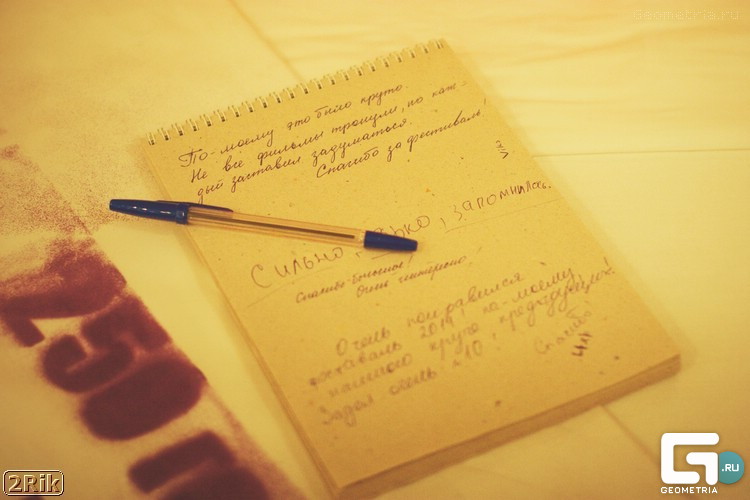 Geometria.ru
По-моему это было круто.
Не все фильмы тронули, но каж-
дый заставил задуматься.
Спасибо за фестиваль!
Сильно, , запомнилась.
Спасибо большое!
Очень интересно
Очень понравился
фестиваль 2014!
намного круче по-моему предыдущих!
очень
Спасибо
250
2Rik
G .ru
GEOMETRIA